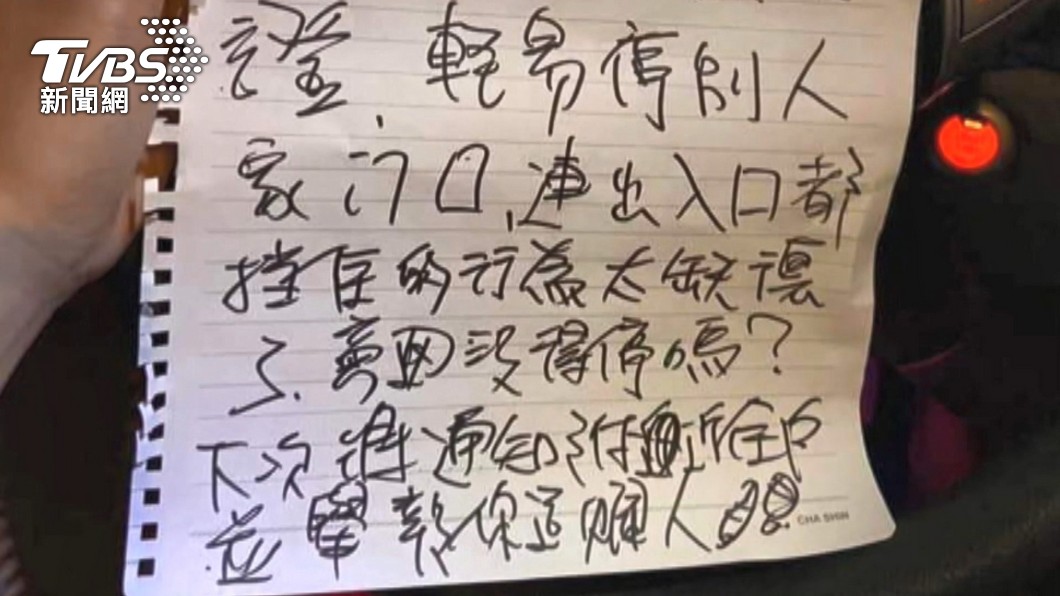 TVBS
新聞網
證,輕易停別人
家门口,連出入口都
挡住的行為太缺德
了.沒得停嗎?
下次將通知附住戶
並舉報你這爛人
CHA SHIN